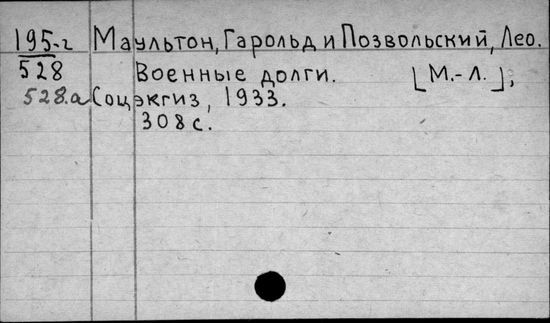 195-г Маультон, Гарольд и Позвольский, Лео.
528 Военные долги. [М.-Л.],
528.а Соцэкгиз, 1933.
308 с.